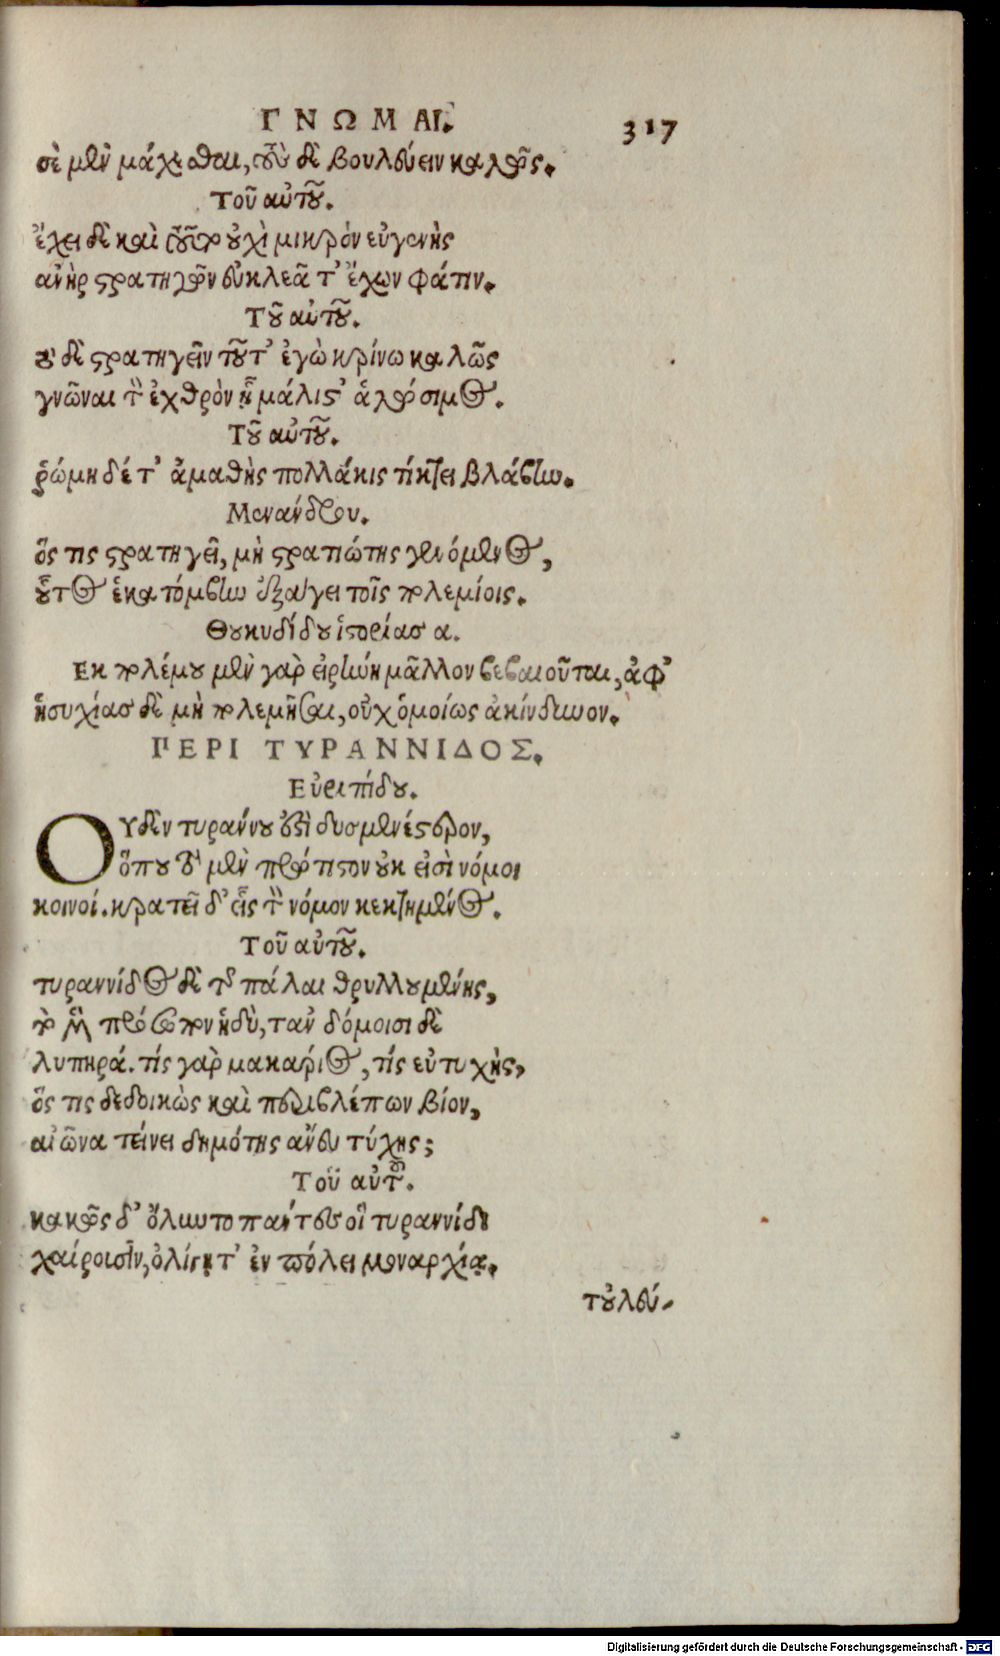 ΓΝΩΜΑΙ. 317
σὲ μὲν μάχεσθαι, τοὺς δὲ βουλεύειν καλῶς.
Τοῦ αὐτοῦ.
ἔχει δὲ καὶ τοῦτο οὐχὶ μικρὸν εὐγενὴς
ἀνὴρ στρατηγῶν εὐκλεᾶ τ’ ἔχων φάτιν.
Τοῦ αὐτοῦ.
τὸ δὲ στρατηγεῖν τοῦτ’ ἐγὼ κρίνω καλῶς
γνῶναι τὸν ἐχθρὸν ᾗ μάλιστ’ ἁλώσιμος.
Τοῦ αὐτοῦ.
ῥώμη δέ τ’ ἀμαθὴς πολλάκις τίκτει βλάβην.
Μενάνδρου.
ὅς τις στρατηγεῖ, μὴ στρατιώτης γενόμενος,
οὗτος ἑκατόμβην ἐξάγει τοῖς πολεμίοις.
Θουκυδίδου ἱστορίας α.
Εκ πολέμου μὲν γὰρ εἰρήνη μᾶλλον βεβαιοῦται, ἀφ’
ἡσυχίας δὲ μὴ πολεμῆσαι, οὐχ ὁμοίως ἀκίνδυνον.
ΠΕΡΙ ΤΥΡΑΝΝΙΔΟΣ.
Εὐριπίδου.
Ουδὲν τυράννου ἐστὶ δυσμενέστερον,
ὅπου τὸ μὲν πρώτιστον οὐκ εἰσὶ νόμοι
κοινοί. κρατεῖ δ’ εἷς τὸν νόμον κεκτημένος.
Τοῦ αὐτοῦ.
τυραννίδος δὲ τῆς πάλαι θρυλλουμένης,
τὸ μὲν πρόσωπον ἡδὺ, τἀν δόμοισι δὲ
λυπηρά. τίς γὰρ μακάριος, τίς εὐτυχὴς,
ὅς τις δεδοικὼς καὶ περιβλέπων βίον,
αἰῶνα τείνει δημότης ἂν εὐτύχης;
Τοῦ αὐτοῦ.
κακῶς δ’ ὄλοιντο πάντες οἳ τυραννίδι
χαίρουσιν, ὀλίγῃ τ’ ἐν πόλει μοναρχίᾳ.
τοὐλεύ-
Digitalisierung gefördert durch die Deutsche Forschungsgemeinschaft - DFG